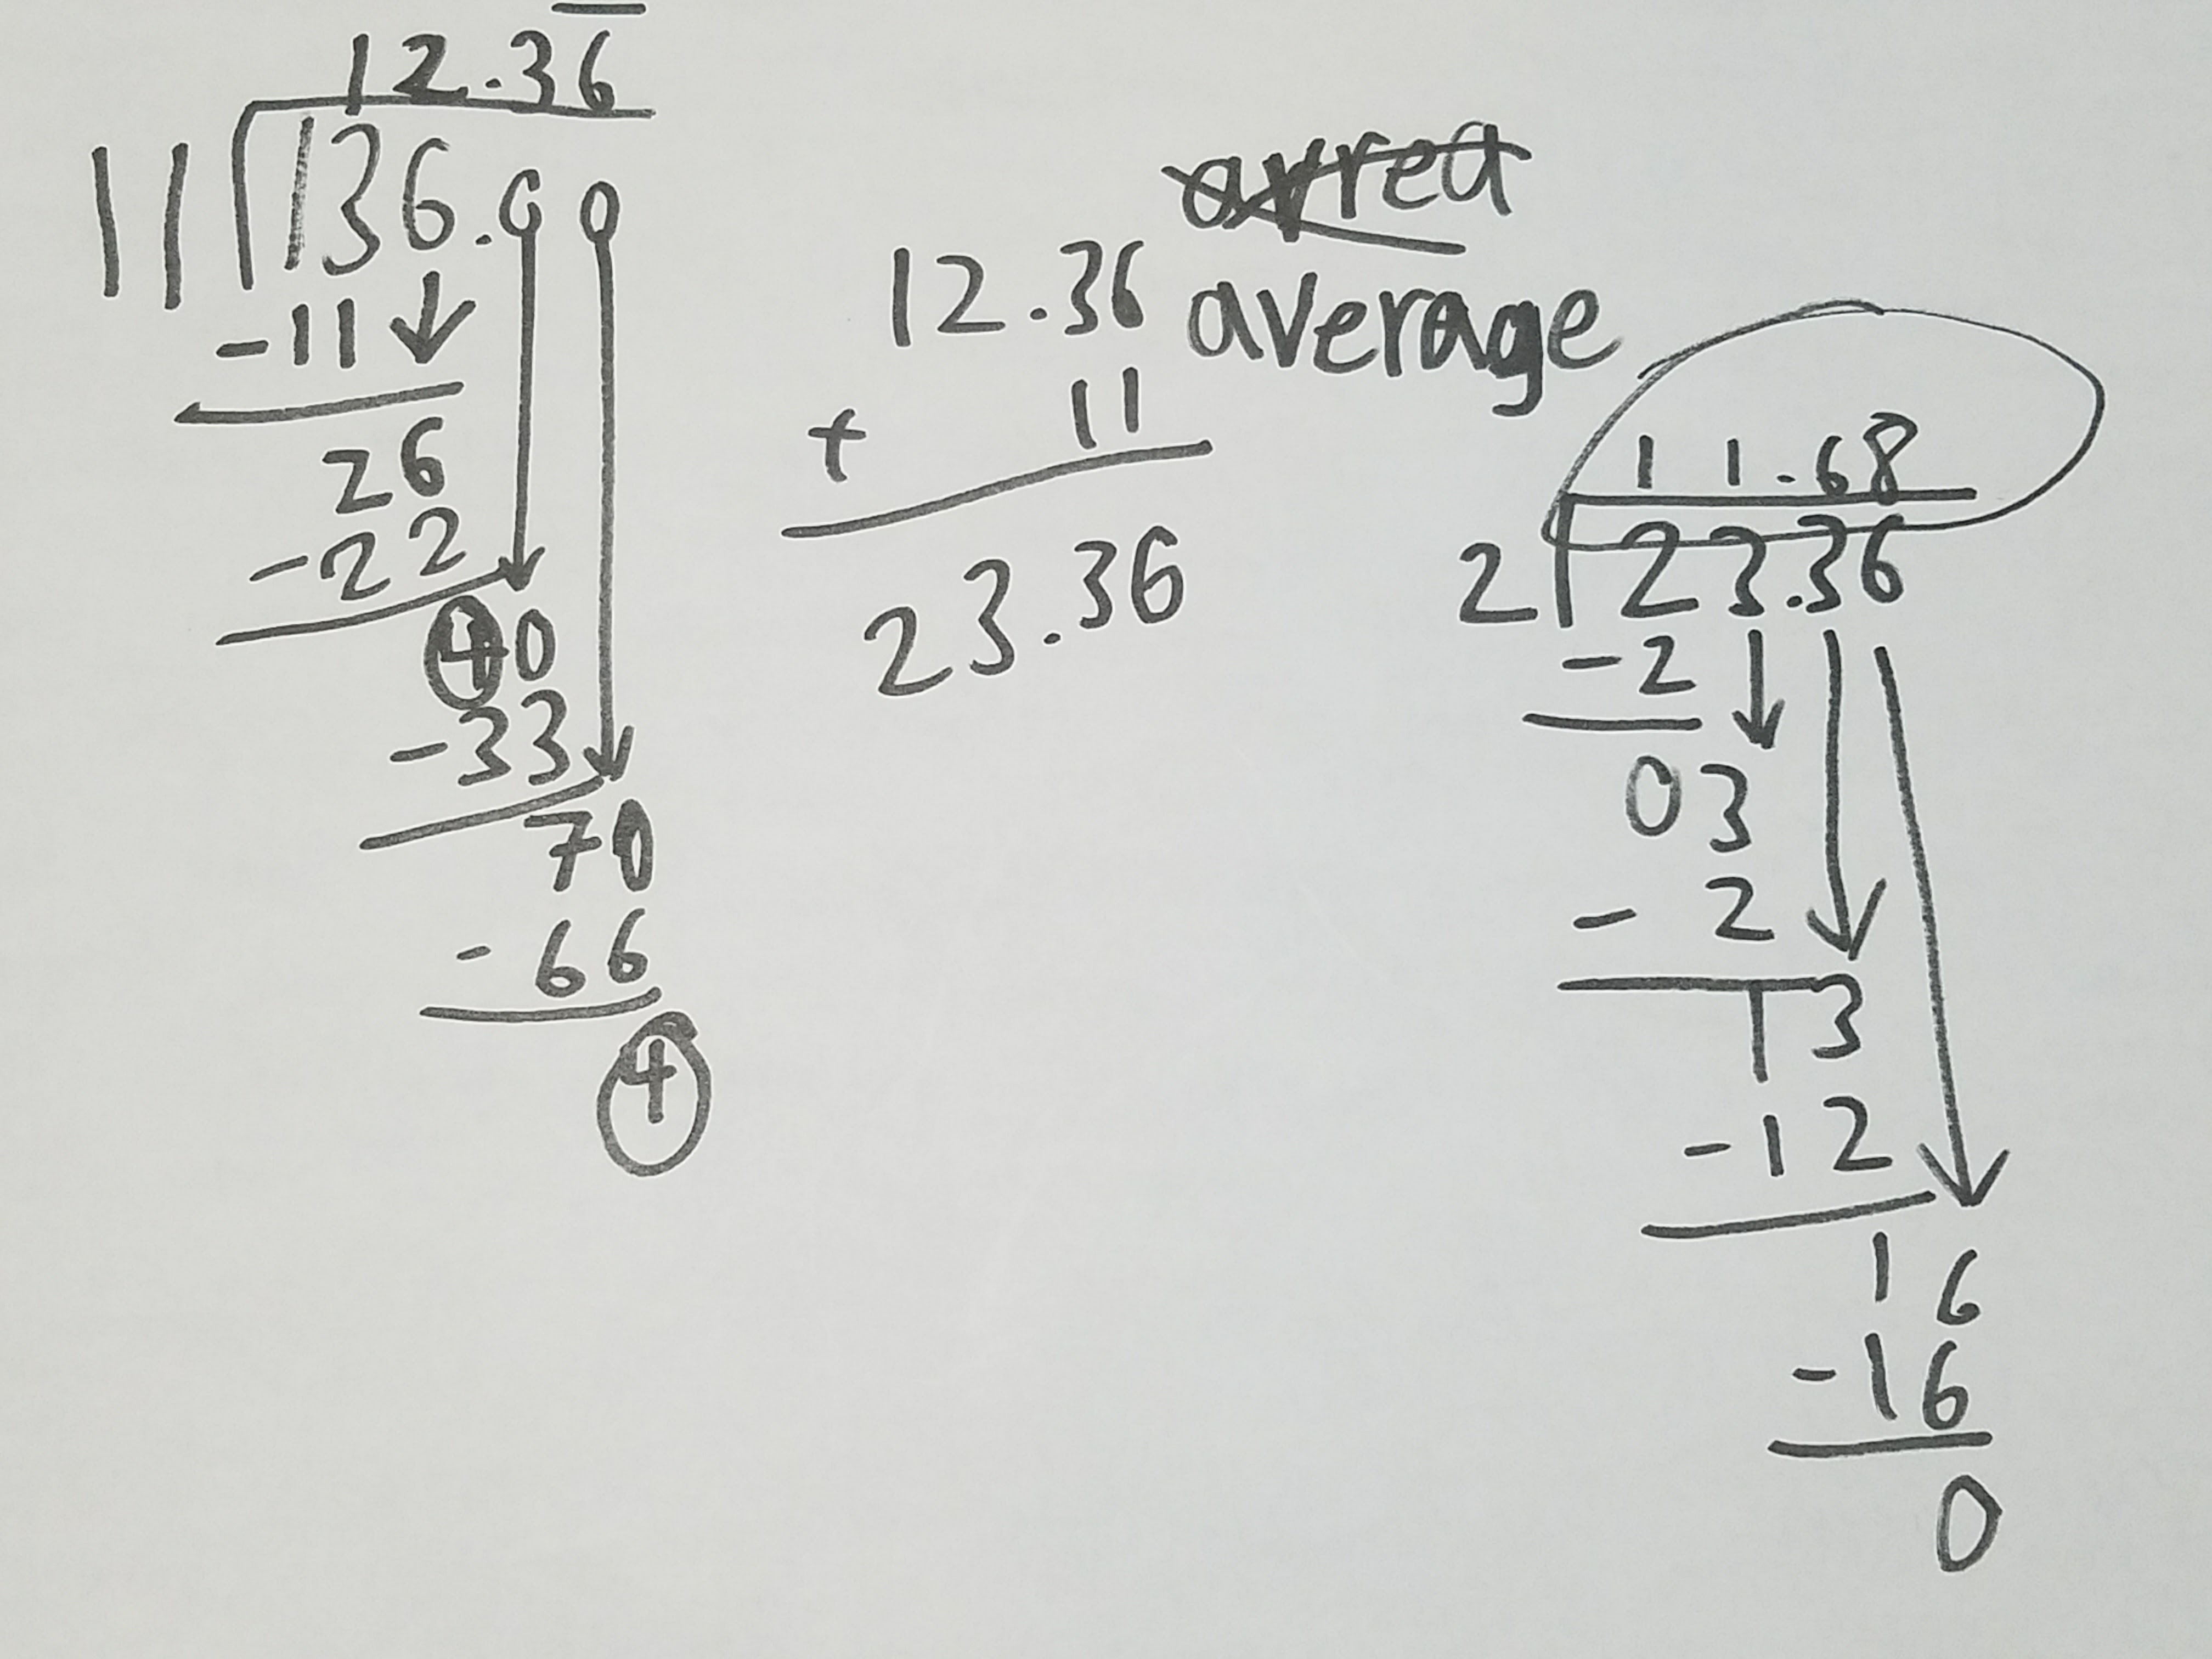 12.36
11 136.00
-11
26
-22
40
-33
70
-66
4
12.36 average
+ 11
23.36
11.68
2 23.36
-2
03
- 2
13
-12
16
-16
0